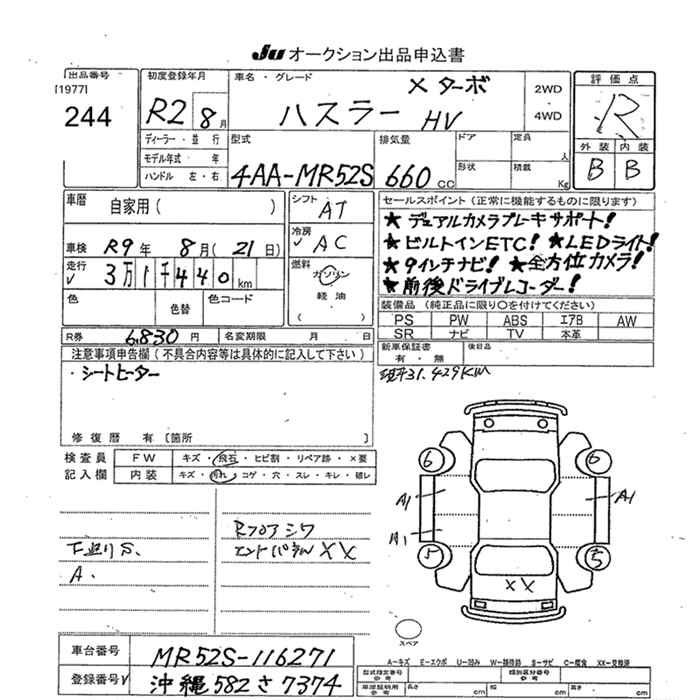 JU オークション出品申込書
出品番号
[1977]
244
初度登録年月
R2 8月
車名・グレード
X ターボ
ハスラー HV
2WD
4WD
評価点
R
外装 内装
B B
ディーラー・並行
モデル年式 年
ハンドル 左・右
型式
4AA-MR52S
排気量
660 CC
ドア
形状
定員
人
積載
Kg
車歴
自家用( )
シフト
AT
冷房
✓ AC
車検 R9年 8月(21日)
走行
✓ 3万1千440km
燃料
ガソリン
軽油
( )
色
色替
色コード
R券 6,830円
名変期限 月 日
セールスポイント(正常に機能するものに限ります)
★デュアルカメラブレーキサポート!
★ビルトインETC! ★LEDライト!
★9インチナビ! ★全方位カメラ!
★前後ドライブレコーダー!
装備品(純正品に限り○を付けてください)
PS PW ABS エアB AW
SR ナビ TV 本革
新車保証書
有・無
後日品
現平31.429KM
注意事項申告欄(不具合内容等は具体的に記入して下さい)
・シートヒーター
修復暦 有〔箇所 〕
検査員
記入欄
FW キズ・飛石・ヒビ割・リペア跡・×要
内装 キズ・汚れ・コゲ・穴・スレ・キレ・破レ
下廻りS、
A.
Rフロアシワ
エンドパネルXX
6 6
A1 A1
A1
5 5
XX
スペア
A-キズ E-エクボ U-凹み W-補修跡 S-サビ C-腐食 XX-交換済
車台番号 MR52S-116271
登録番号 沖縄 582 さ 7374
型式指定番号
参考
類別区分番号
参考
車庫証明用
参考
長さ cm 幅 cm 高さ cm